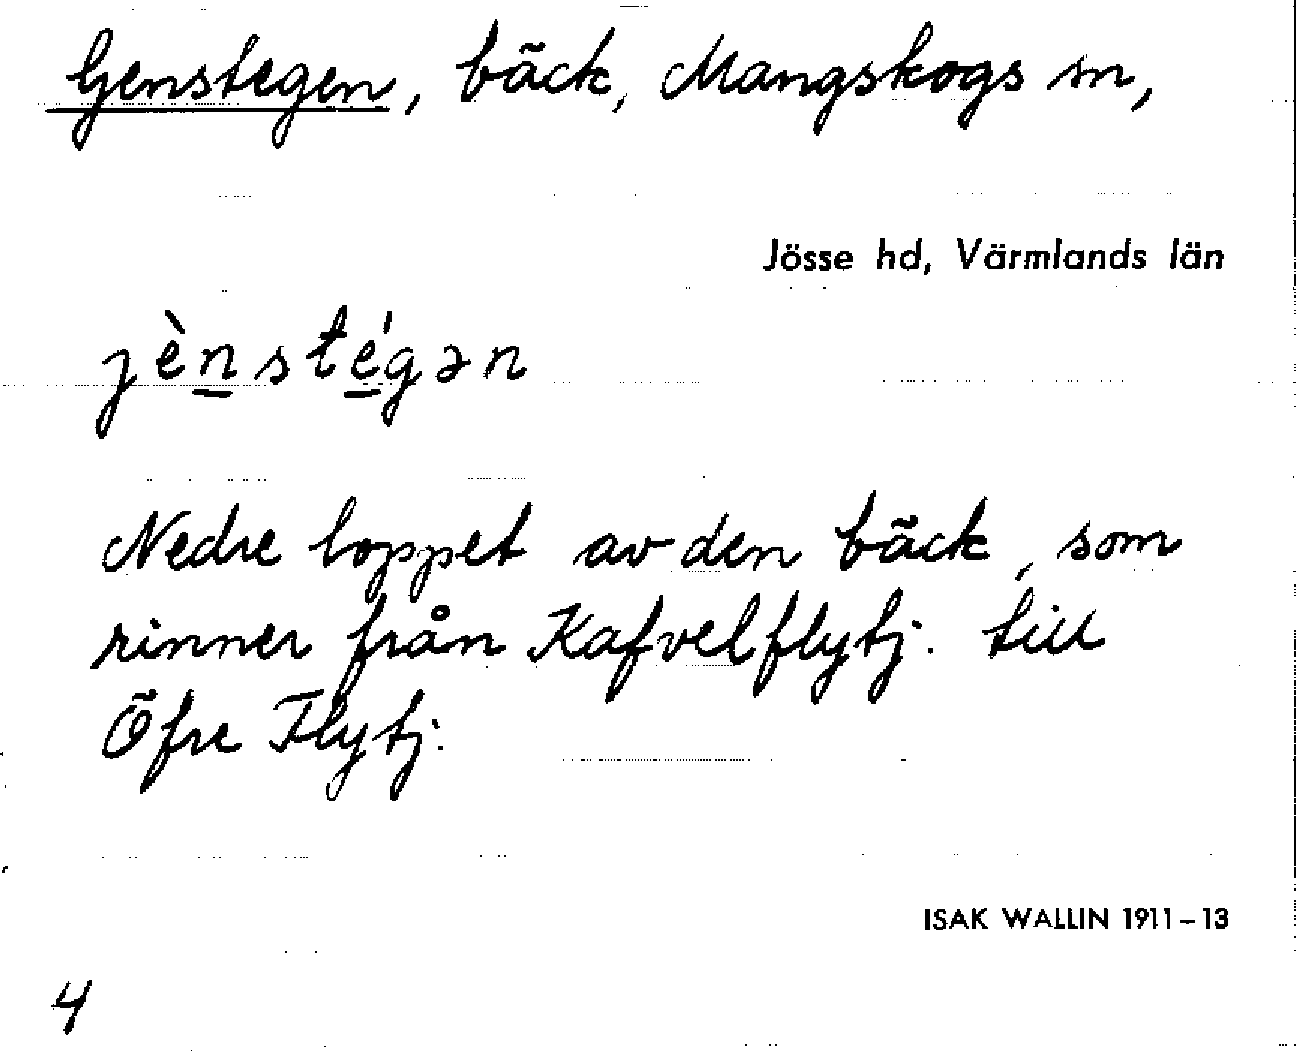 Genstegen, bäck, Mangskogs sn,
Jösse hd, Värmlands län
jènstégən
Nedre loppet av den bäck, som
rinner från Kafvelflytj. till
Öfre Flytj.
ISAK WALLIN 1911–13
4